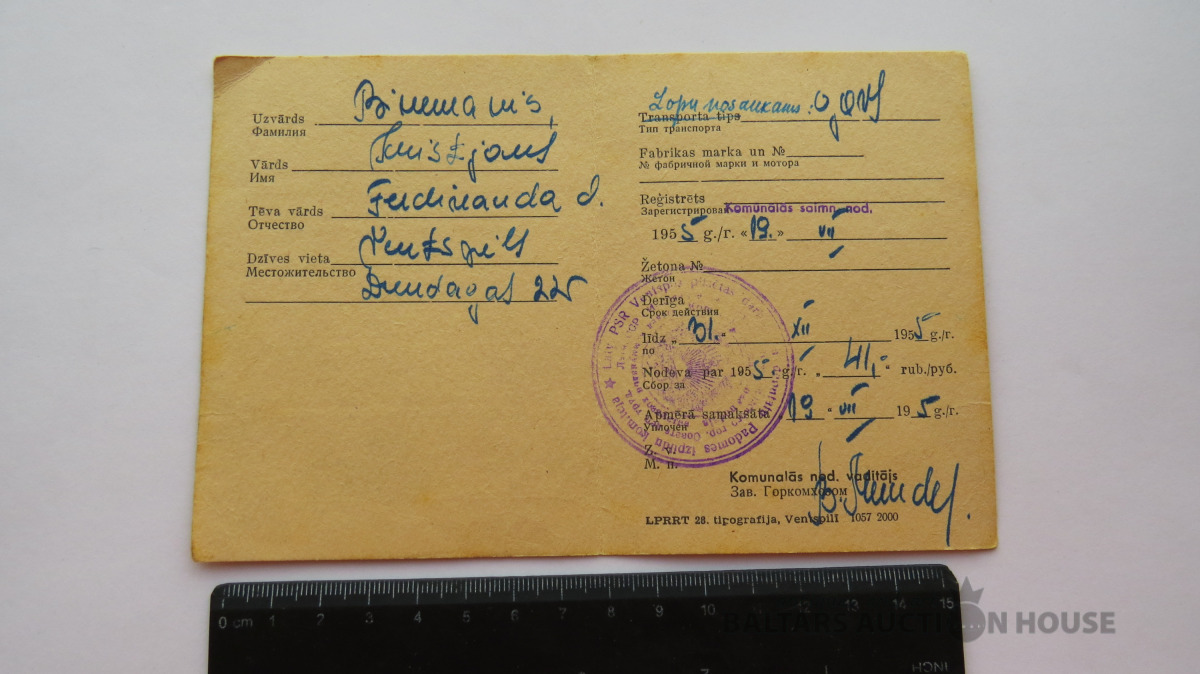 Uzvārds Binemanis,
Фамилия
Vārds Kristjans
Имя
Tēva vārds Ferdinanda d.
Отчество
Dzīves vieta Ventspils
Местожительство
Dundagas 22
Lopu nosaukums:
Transporta tips
Тип транспорта
Fabrikas marka un №
№ фабричной марки и мотора
Reģistrēts
Зарегистрирован Komunālās saimn. nod.
1955 g./г. «19.» VII
Žetona №
Жетон
Derīga
Срок действия
līdz „31.“ XII 1955 g./г.
по
Nodeva par 1955. g./г. „41,-“ rub./руб.
Сбор за
Apmērā samaksāta 19 “ VII 195 g./г.
Уплочен
Z. v.
М. п.
Komunālās nod. vadītājs
Зав. Горкомхозом
LPRRT 28. tipografija, Ventspilī 1057 2000
Latv PSR Ventspils pilsētas Padomes izpildu komiteja
0 cm 1 2 3 4 5 6 7 8 9 10 11 12 13 14 15
INCH
BALTARS AUCTION HOUSE